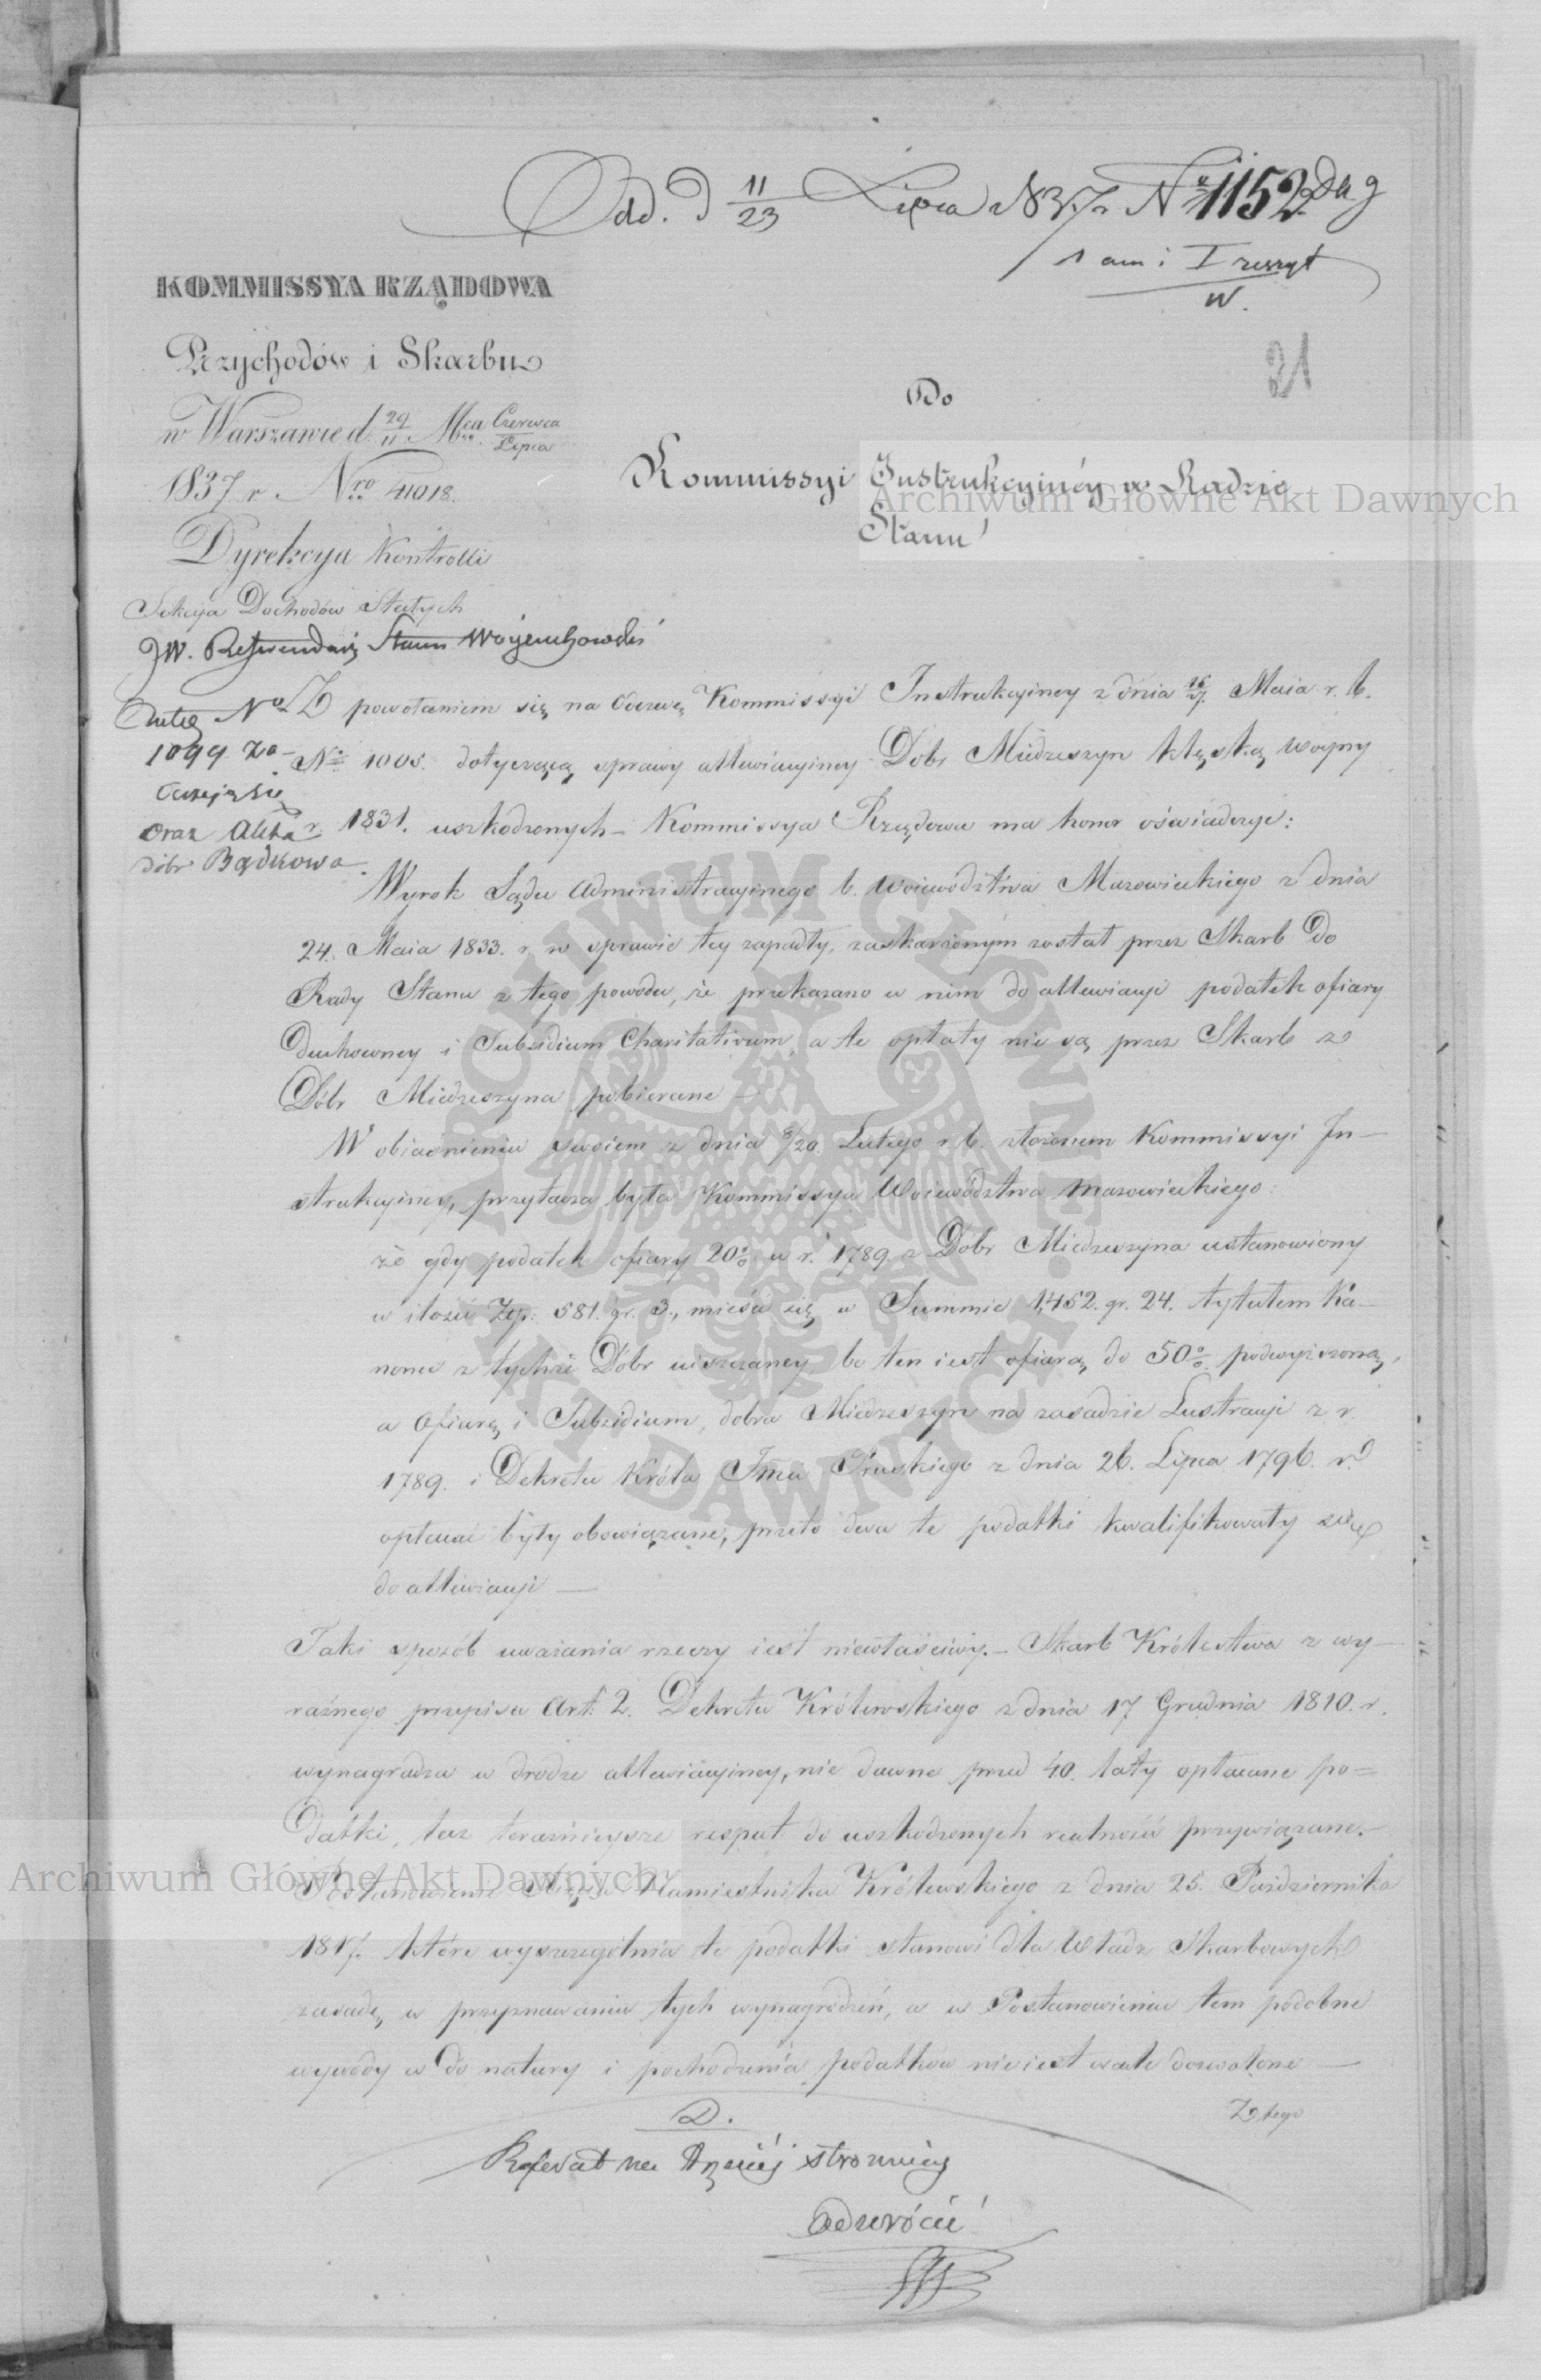 Odd. D 11/23 Lipca 1837 r. No 1152
1 am i I zeszyt
W.
21
KOMMISSYA RZĄDOWA
Przychodów i Skarbu
w Warszawie d. 29/11 Mca Czerwca/Lipca
1837 r. Nro 41018.
Dyrekcya Kontrolli
Sekcya Dochodów Stałych
Do
Kommissyi Instrukcyinéy w Radzie
Stanu
JW. Referendarz Stanu Woyciechowski
No
1099 za-
oraz Akta
dóbr Bądkowa.
Z powołaniem się na Odezwę Kommissyi Instrukcyiney z dnia 15/27. Maia r. b.
No 1005. dotyczącą sprawy allewiacyiney Dóbr Miedzeszyn klęską woyny
r. 1831. uszkodzonych – Kommissya Rządowa ma honor oświadczyć:
Wyrok Sądu Administracyinego b. Woiewództwa Mazowieckiego z dnia
24. Maia 1833. r. w sprawie tey zapadły, zaskarżonym został przez Skarb do
Rady Stanu z tego powodu, że przekazano w nim do allewiacyi podatek ofiary
Duchowney i Subsidium Charitativum, a te opłaty nie są przez Skarb z
Dóbr Miedzeszyna pobierane –
W obiaśnieniu swoiem z dnia 8/20. Lutego r. b. złożonem Kommissyi In-
strukcyiney, przytacza była Kommissya Woiewództwa Mazowieckiego:
że gdy podatek ofiary 20% w r. 1789. z Dóbr Miedzeszyna ustanowiony
w ilości Złp. 581. gr. 3., mieści się w Summie 1,452. gr. 24. tytułem Ka-
nonu z tychże Dóbr uiszczaney, bo ten iest ofiarą do 50% podwyższoną,
a Ofiarę i Subsidium, dobra Miedzeszyn na zasadzie Lustracyi z r.
1789. i Dekretu Króla Jmci Pruskiego z dnia 26. Lipca 1796. r.
opłacać były obowiązane, przeto dwa te podatki kwalifikowały się
do allewiacyi –
Taki sposób uważania rzeczy iest niewłaściwy. – Skarb Królestwa z wy-
raźnego przepisu Art: 2. Dekretu Królewskiego z dnia 17 Grudnia 1810. r.
wynagradza w drodze allewiacyiney, nie dawne przed 40. laty opłacane po-
datki, lecz teraźnieysze respect: do uszkodzonych realności przywiązane. –
Postanowienie Xięcia Namiestnika Królewskiego z dnia 25. Października
1817. które wyszczególnia te podatki stanowi dla Władz Skarbowych
zasadę w przyznawaniu tych wynagrodzeń, a w Postanowieniu tem podobne
wywody co do natury i pochodzenia podatków nie iest wcale dozwolone –
Z tego
D.
Referat na trzeciéj stronnicy
odwrócić
Archiwum Główne Akt Dawnych
Archiwum Główne Akt Dawnych
ARCHIWUM GŁÓWNE AKT DAWNYCH